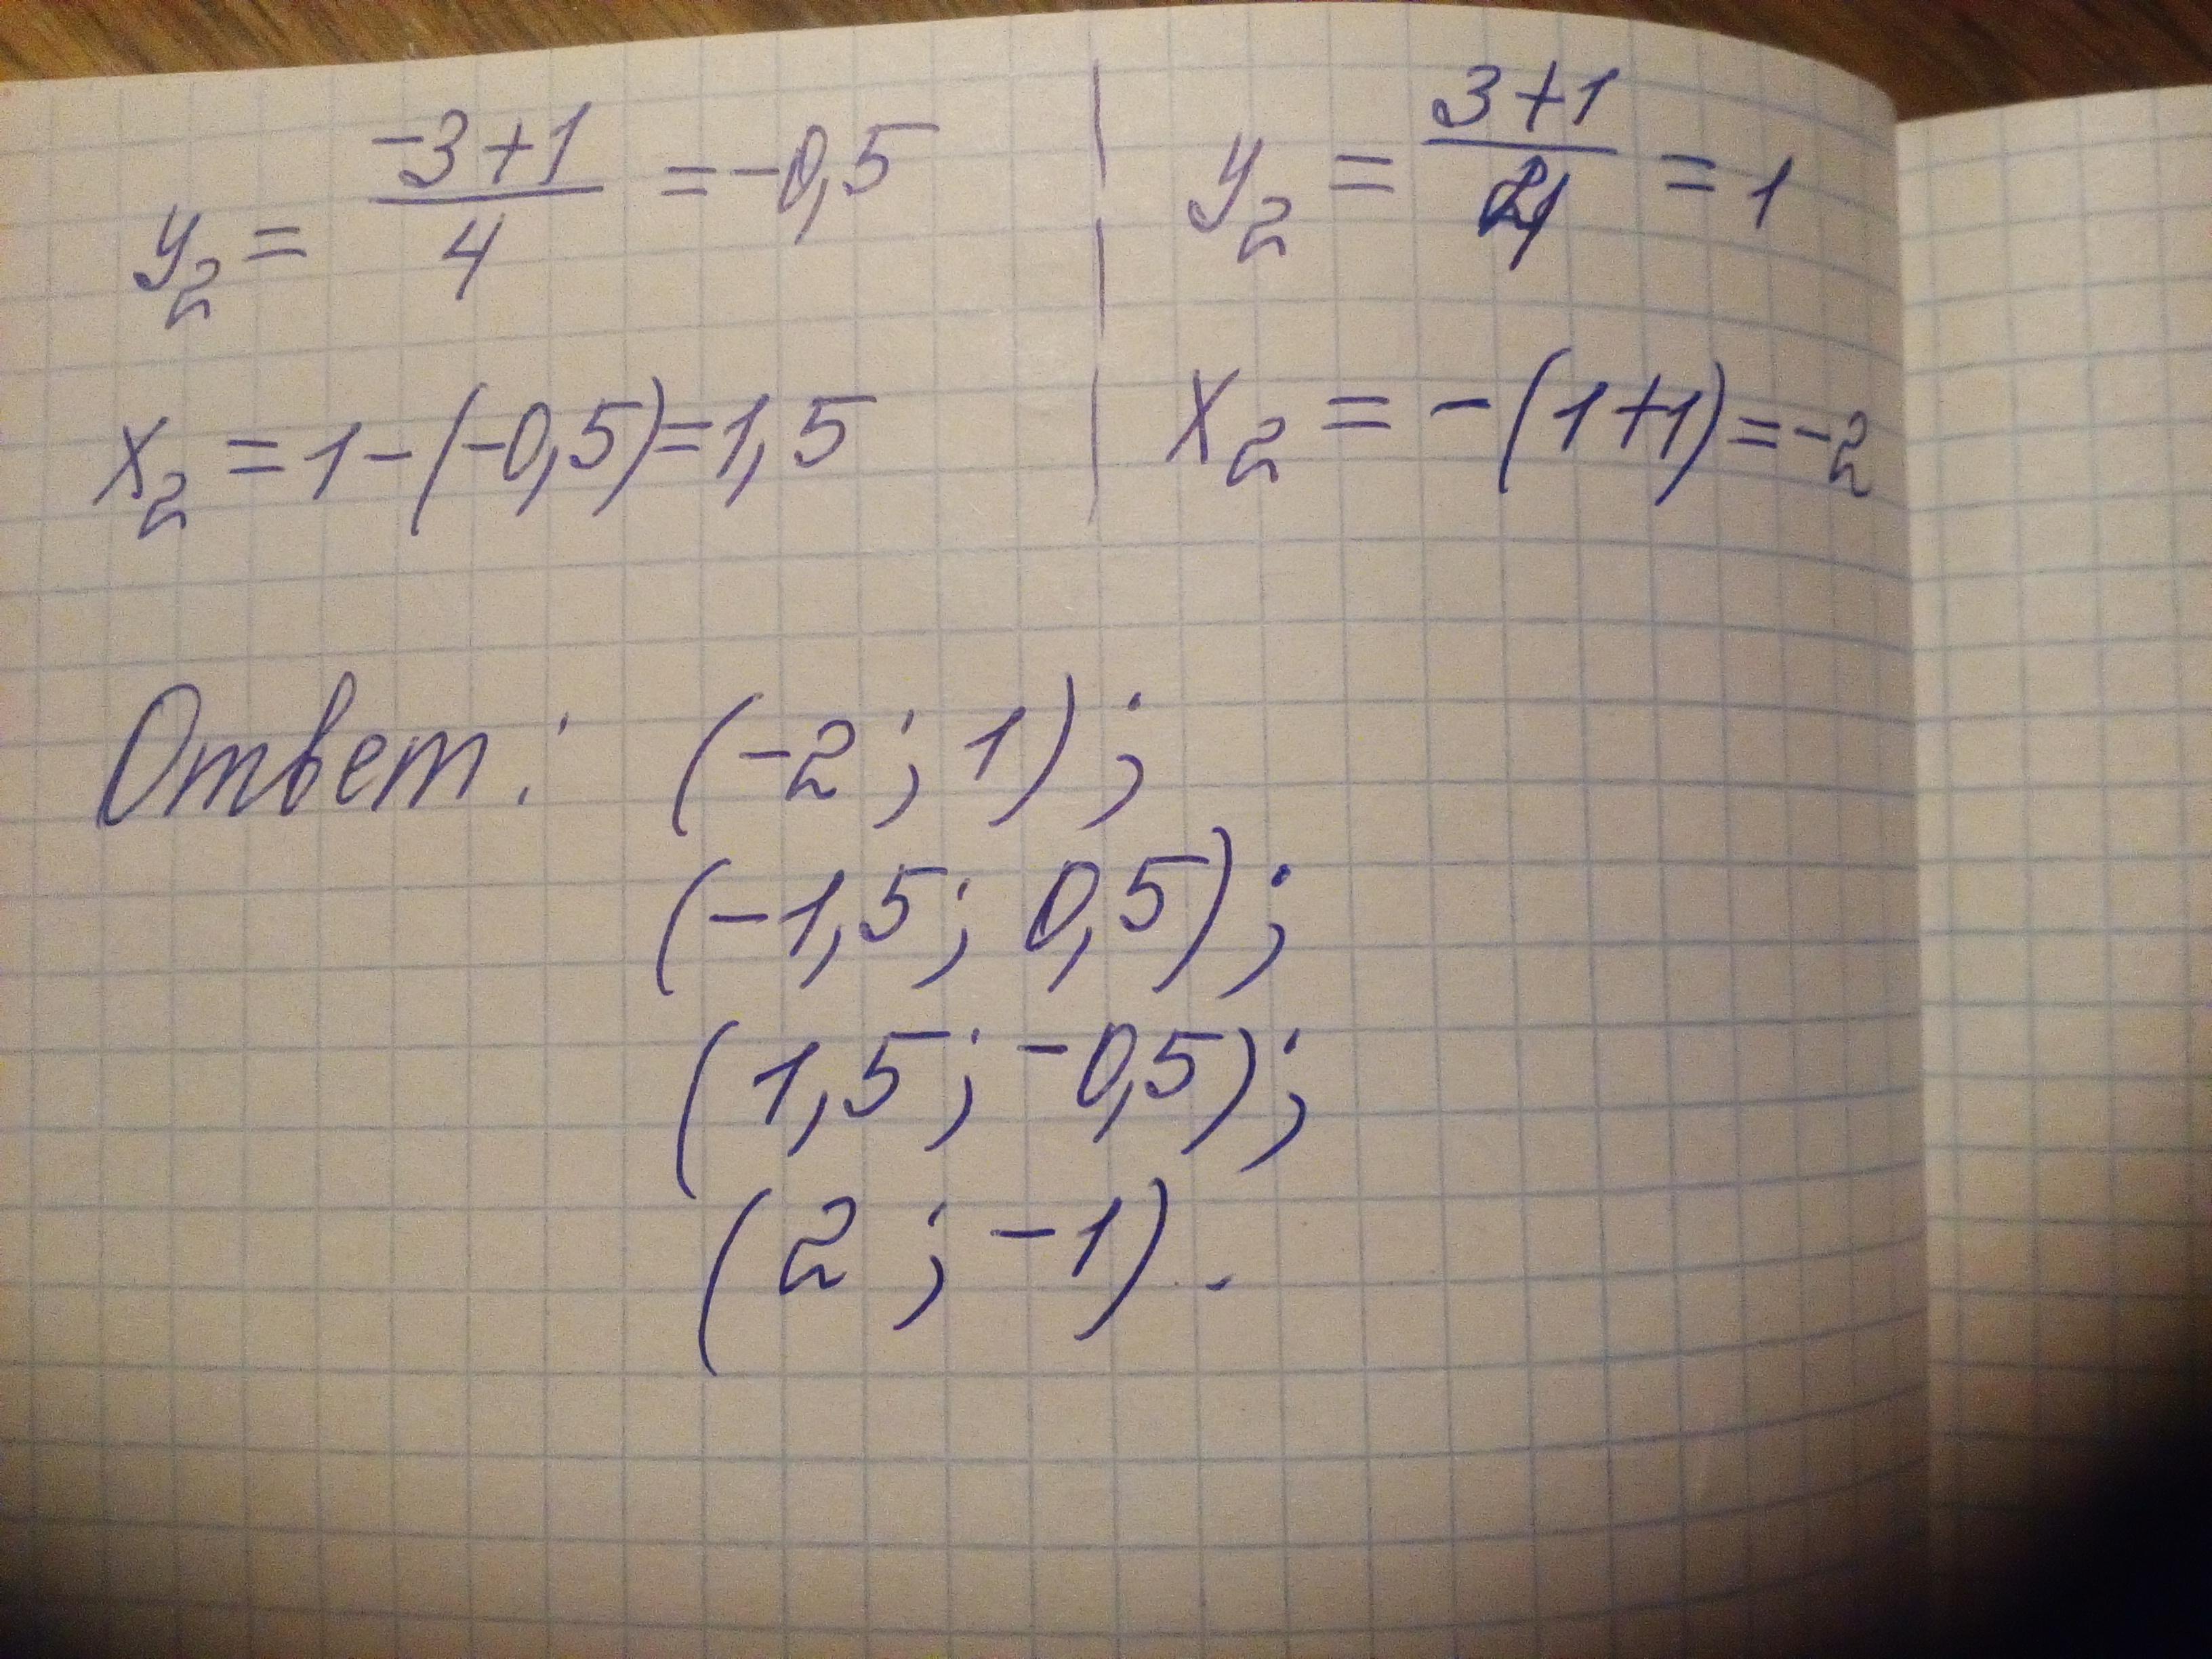 y₂ = (-3+1)/4 = -0,5 | y₂ = (3+1)/4 = 1
x₂ = 1-(-0,5)=1,5 | x₂ = -(1+1)=-2
Ответ: (-2; 1);
(-1,5; 0,5);
(1,5; -0,5);
(2; -1).